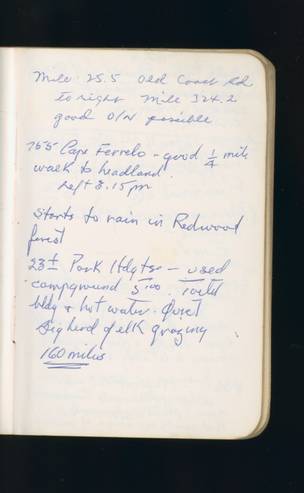 Mile 25.5 Old Coast Rd
to right Mile 324.2
good O/N possible
Cape Ferrelo - good 1/4 mile
walk to headland.
Left 3.15 pm
Starts to rain in Redwood
forest
Park Hdqtrs - used
campground 5.00. Toilet
bldg + hot water. Quiet
Big herd of elk grazing
160 miles